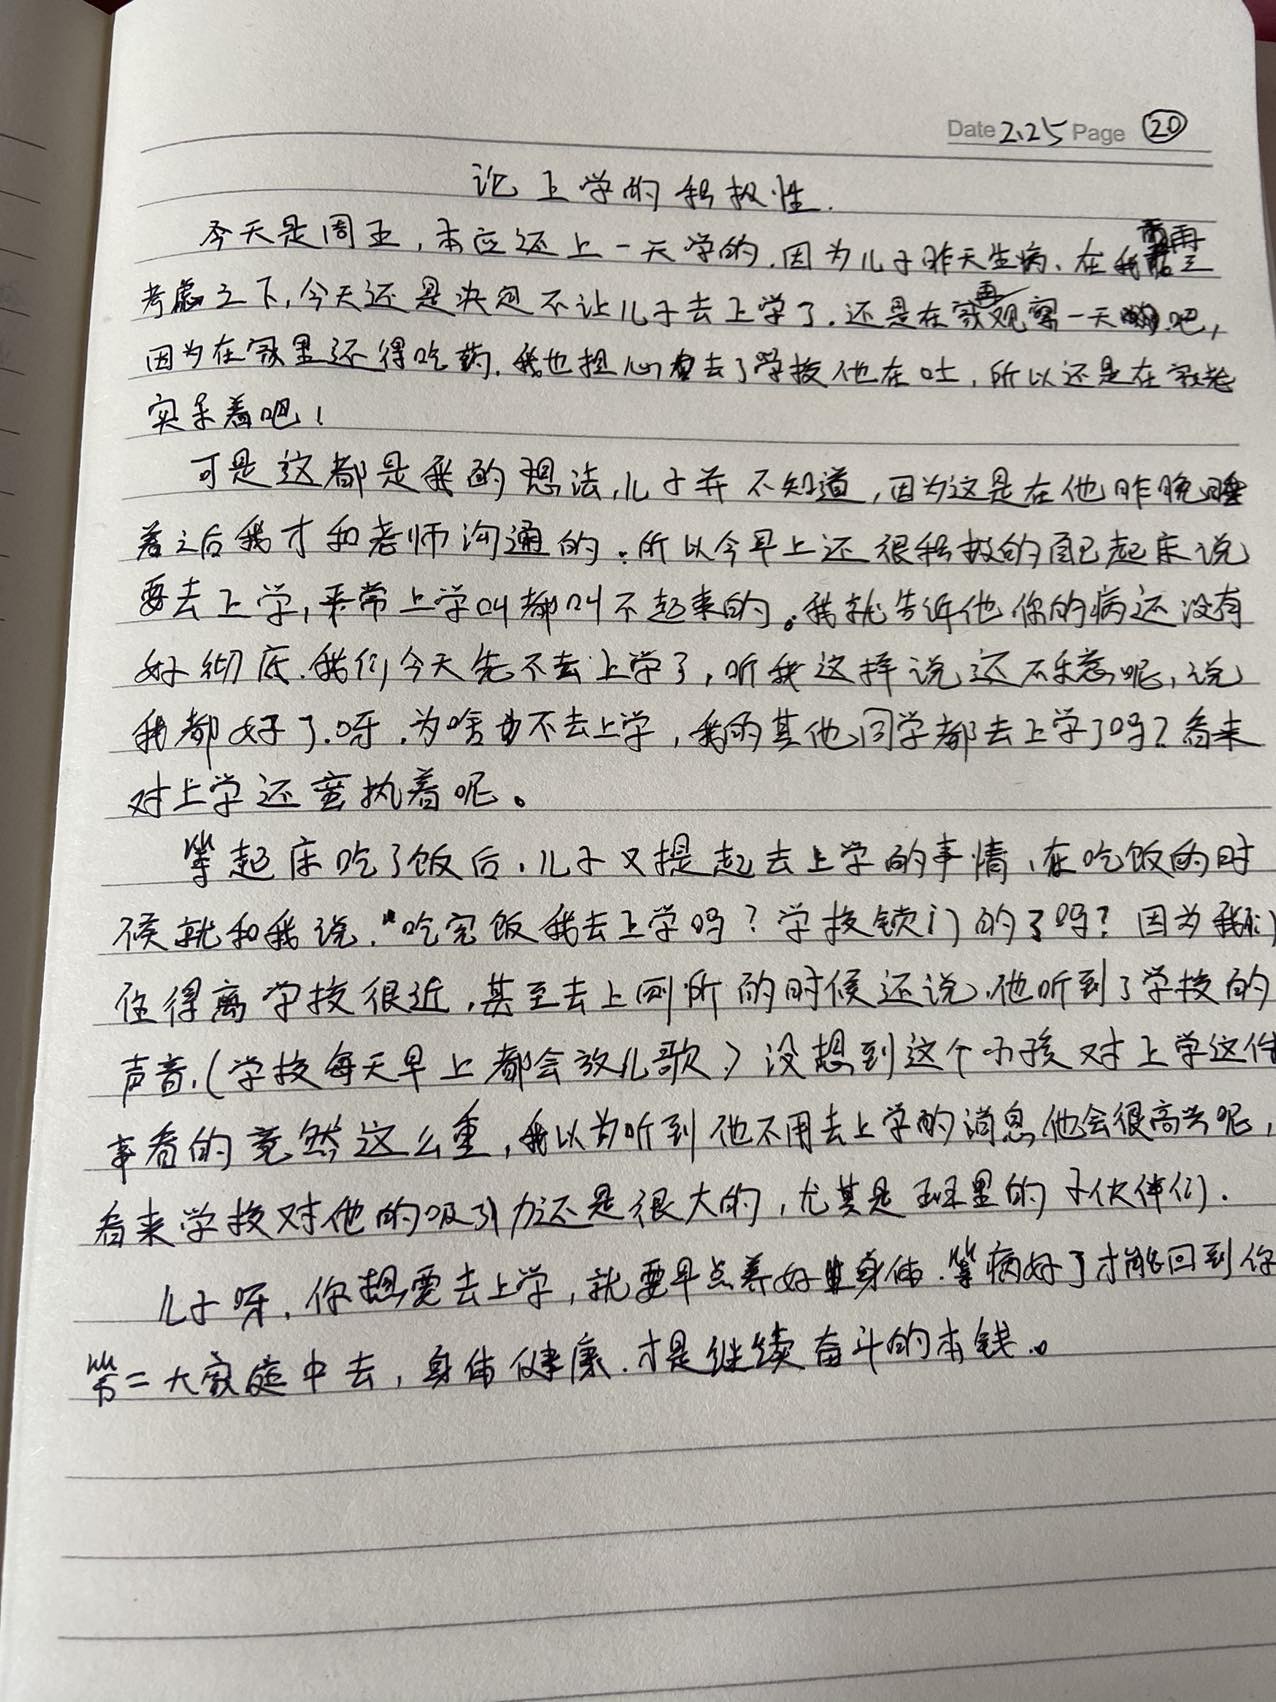 Date 2.25 Page 20
论上学的积极性.
今天是周五,本应还上一天学的.因为儿子昨天生病、在我再三
考虑之下,今天还是决定不让儿子去上学了.还是在家再观察一天吧,
因为在家里还得吃药.我也担心去了学校他在吐,所以还是在家老
实呆着吧!
可是这都是我的想法,儿子并不知道,因为这是在他昨晚睡
着之后我才和老师沟通的.所以今早上还很积极的自己起床说
要去上学,平常上学叫都叫不起来的。我就告诉他你的病还没有
好彻底.我们今天先不去上学了,听我这样说还不乐意呢,说
我都好了呀.为啥不去上学,我的其他同学都去上学了吗?看来
对上学还蛮执着呢。
等起床吃了饭后,儿子又提起去上学的事情,在吃饭的时
候就和我说."吃完饭我去上学吗?学校锁门的了吗?因为我们
住得离学校很近,甚至去上厕所的时候还说,他听到了学校的
声音,(学校每天早上都会放儿歌,)没想到这个小孩对上学这件
事看的竟然这么重,我以为听到他不用去上学的消息他会很高兴呢,
看来学校对他的吸引力还是很大的,尤其是班里的小伙伴们.
儿子呀,你想要去上学,就要早点养好身体.等病好了才能回到你
第二大家庭中去,身体健康.才是继续奋斗的本钱。